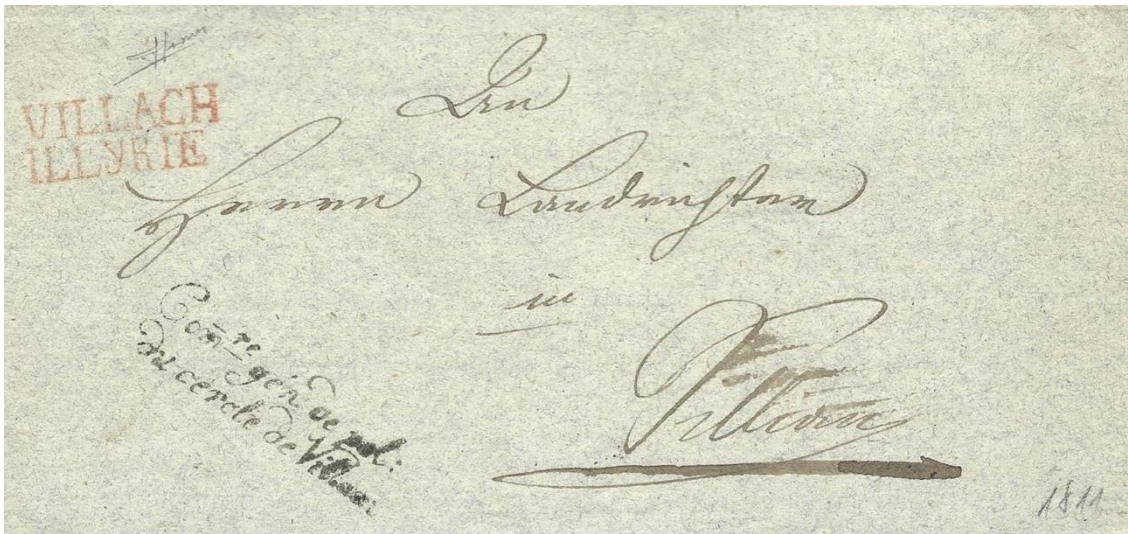 VILLACH
ILLYRIE
An
Herrn Landrichter
in
Sillian
Com.re gén. de pol.
du cercle de Villach
1811